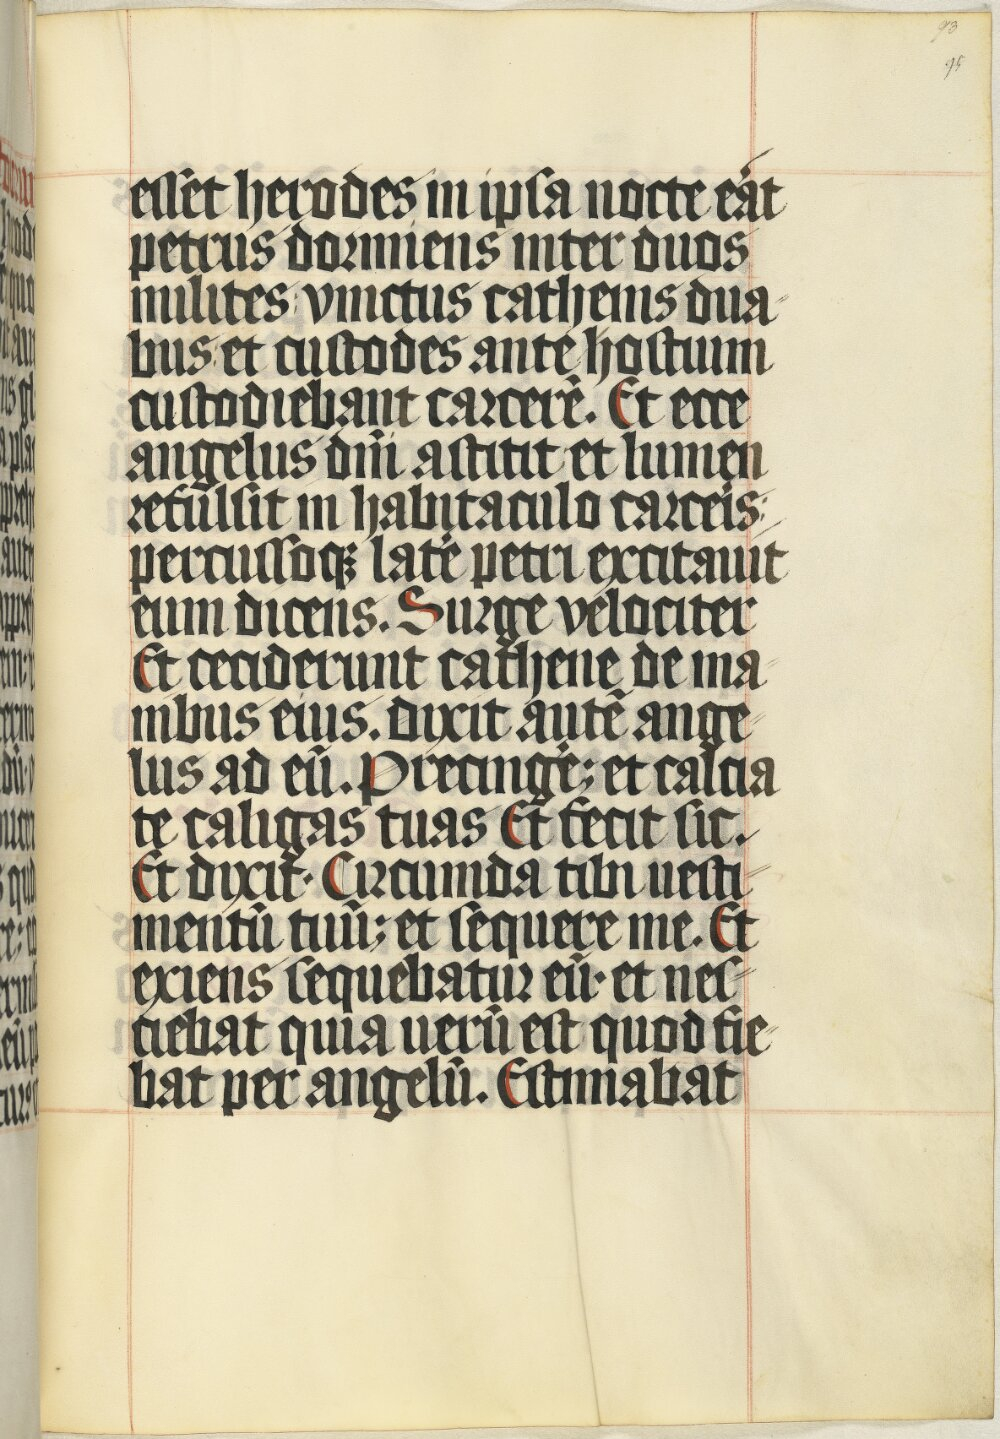 93
95
esset herodes in ipsa nocte eāt
petrus dormiens inter duos
milites: vinctus cathenis dua
bus: et custodes ante hostium
custodiebant carcerē. Et ecce
angelus dn̄i astitit: et lumen
refulsit in habitaculo carceis:
percussoqꝫ late petri excitauit
eum dicens. Surge velociter
Et ceciderunt cathene de ma
nibus eius. Dixit autē ange
lus ad eū. Precinge; et calcia
te caligas tuas Et fecit sic.
Et dixit. Circumda tibi uesti
mentū tuū; et sequere me. Et
exiens sequebatur eū. et nes
ciebat quia uerū est quod fie
bat per angelū. Estimabat